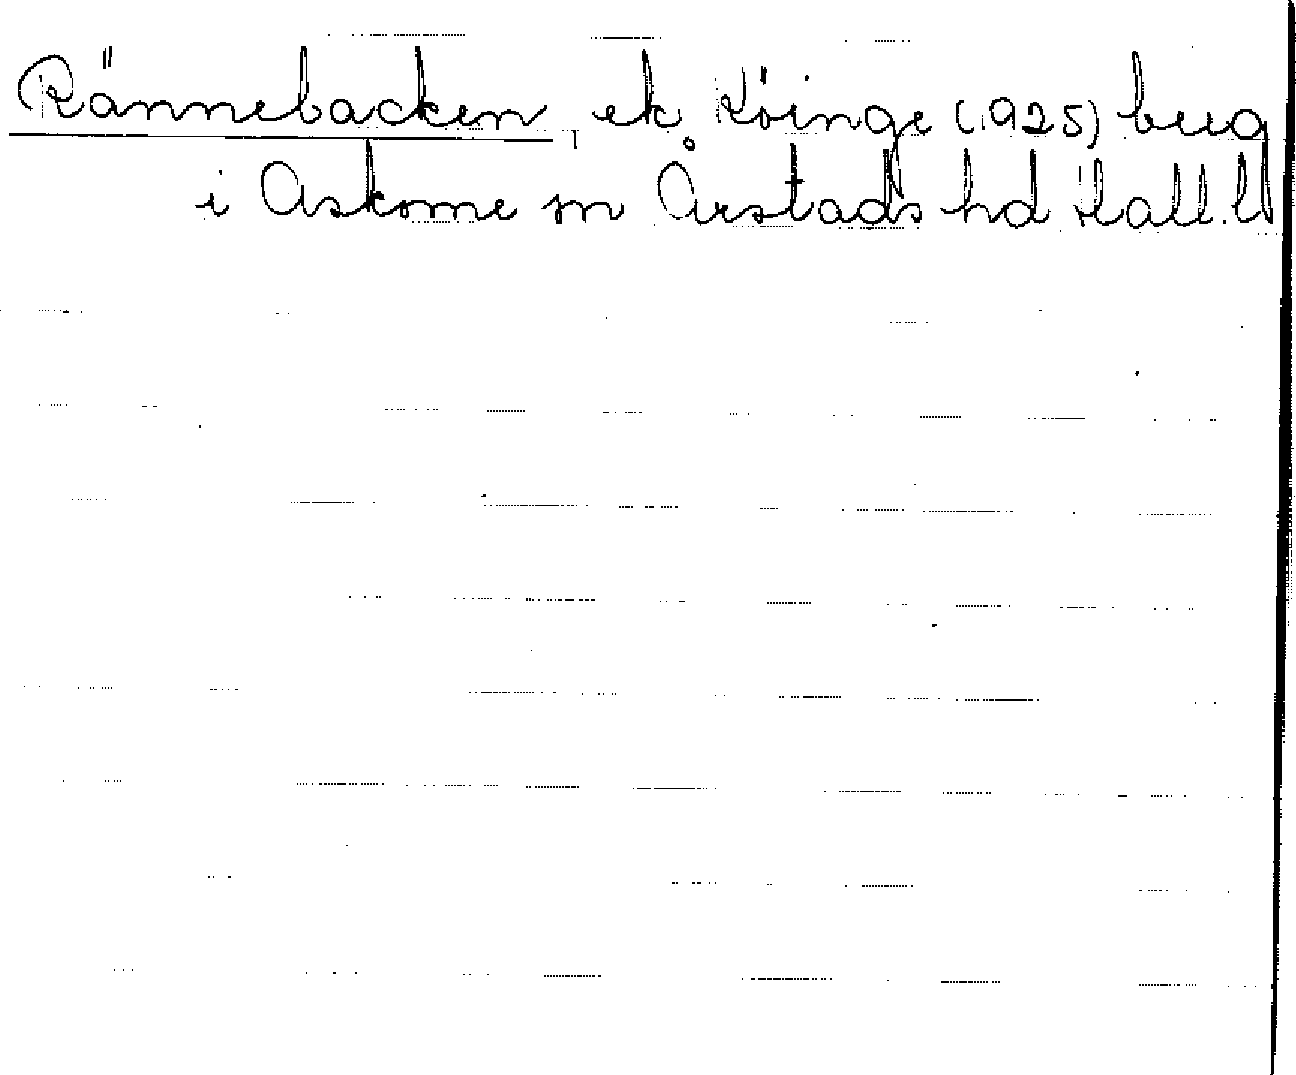 Rännebacken ek Köinge (1925) berg
i Askome sn Årstads hd Hall. l